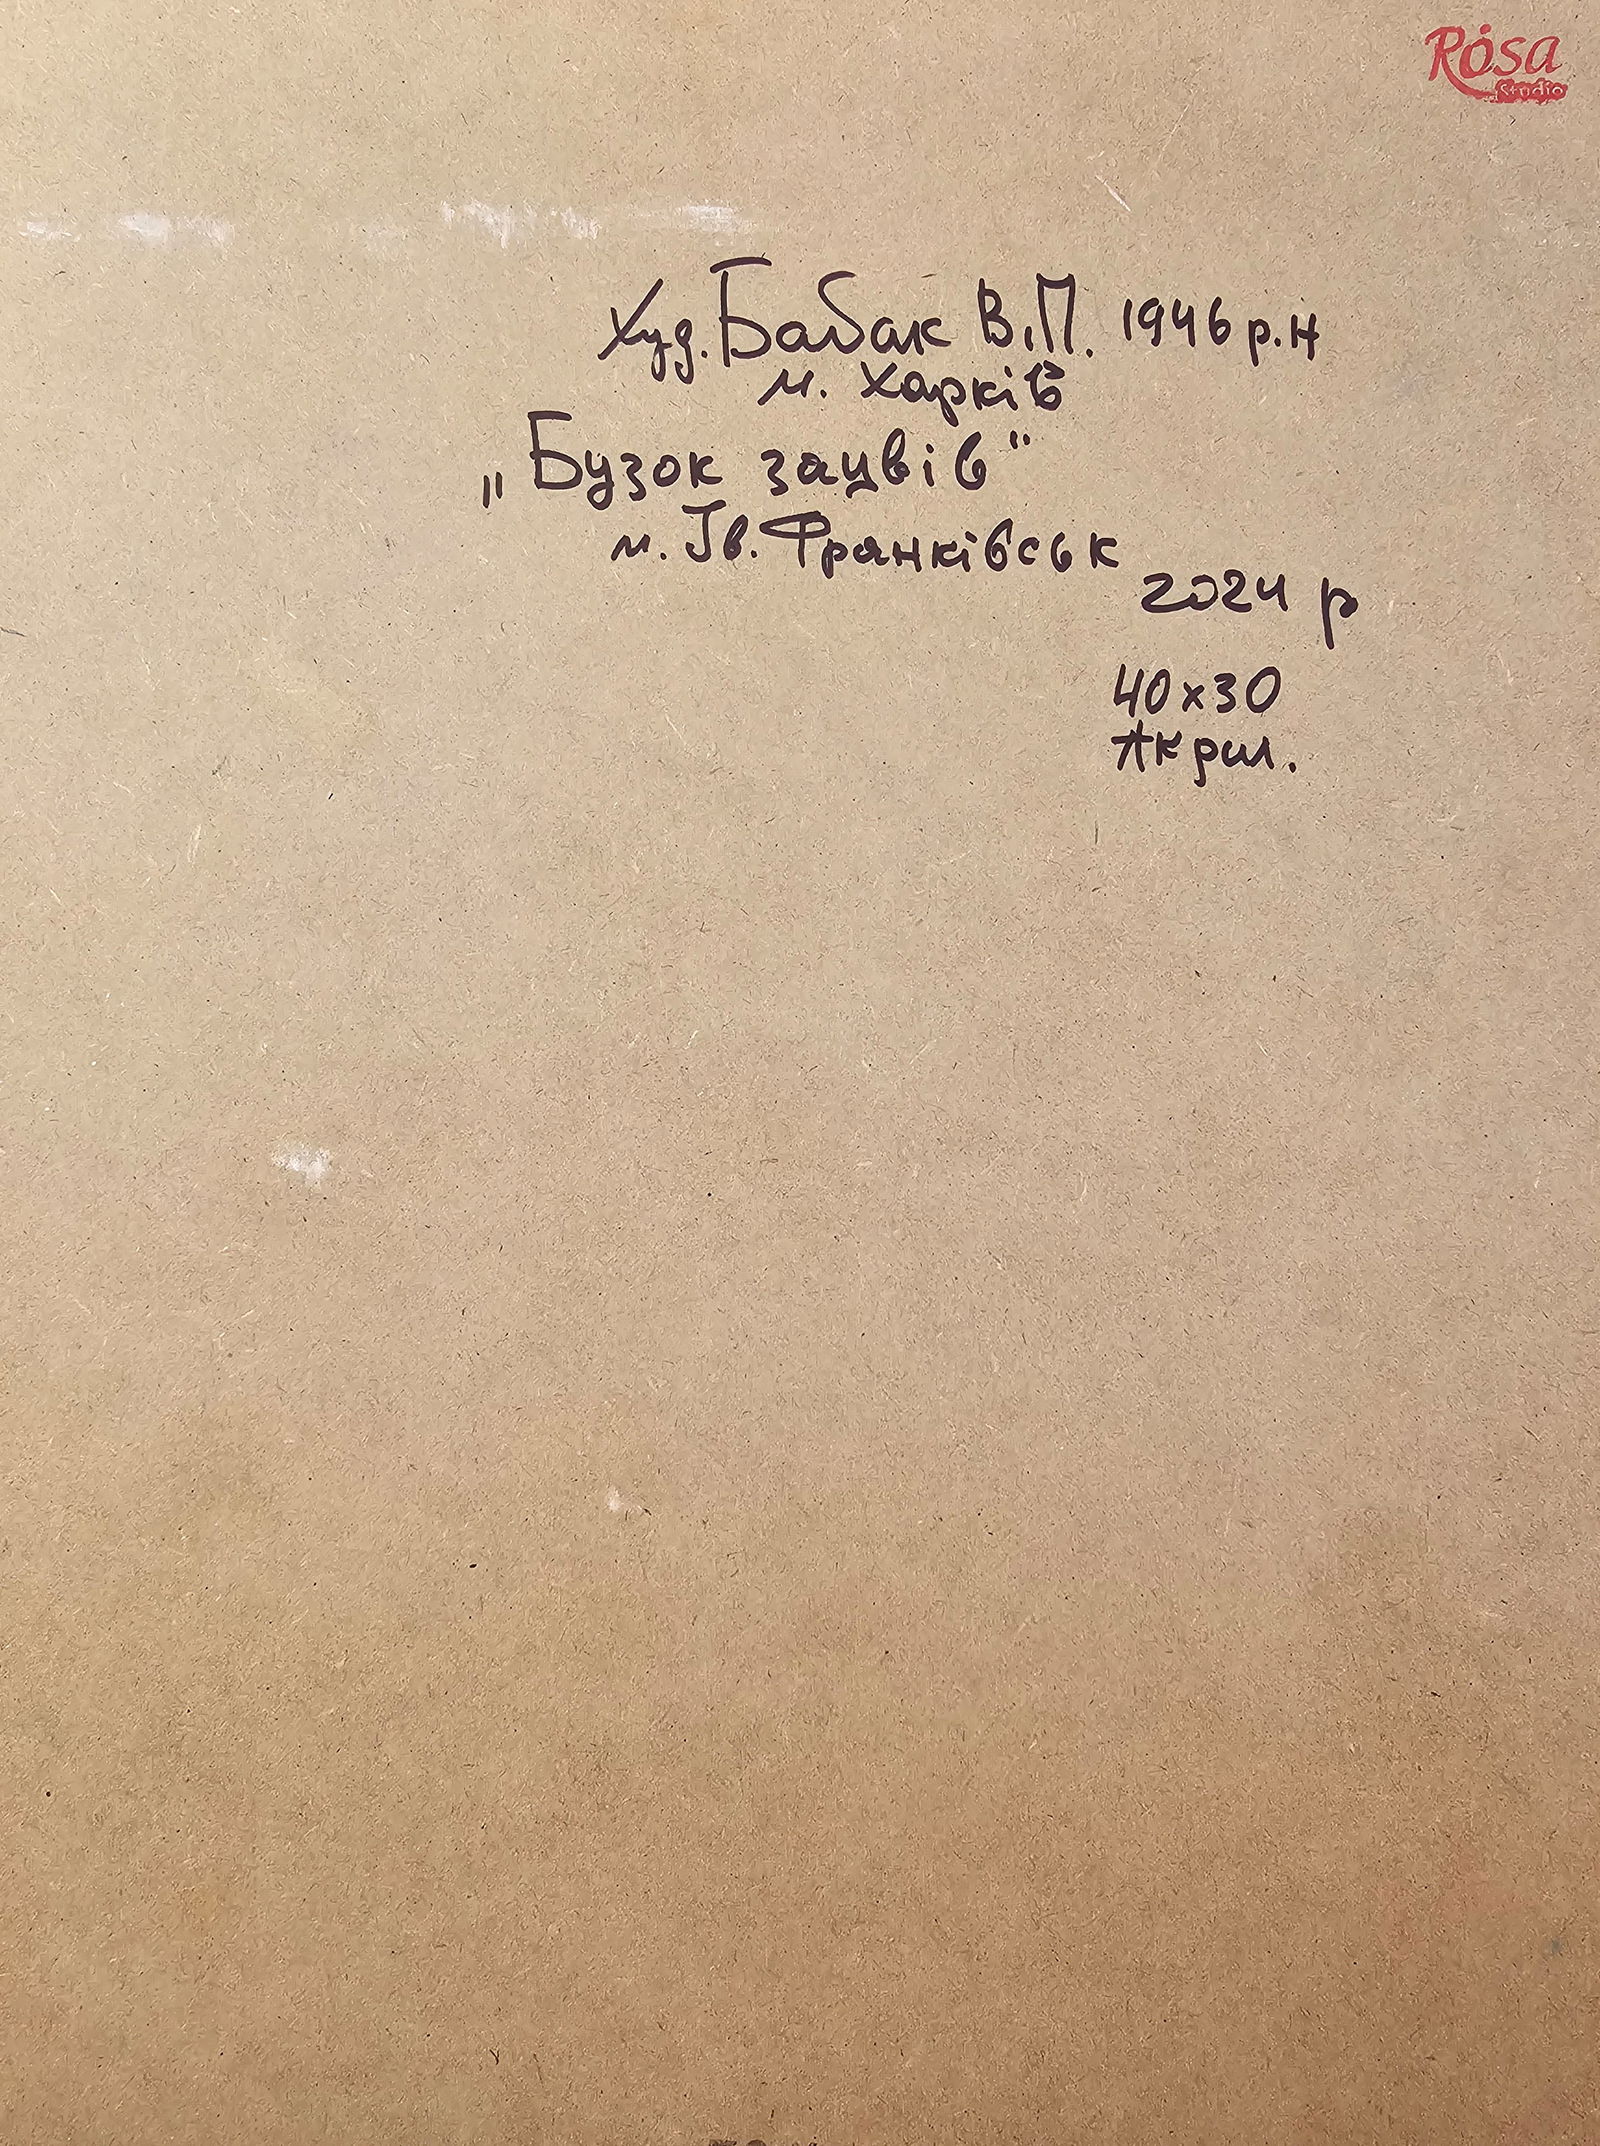 Rosa
Studio
Худ. Бабак В.П. 1946 р.н
м. Харків
„Бузок зацвів"
м. Ів. Франківськ
2024 р
40х30
Акрил.